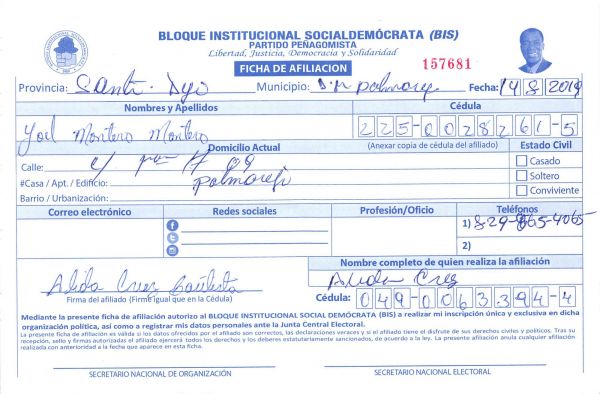 BLOQUE INSTITUCIONAL SOCIALDEMÓCRATA (BIS)
PARTIDO PEÑAGOMISTA
Libertad, Justicia, Democracia y Solidaridad
FICHA DE AFILIACION
157681
Provincia: Municipio: Fecha: 14 8 2019
Nombres y Apellidos Cédula
Yoel Montero Montero 225-0028261-5
Domicilio Actual (Anexar copia de cédula del afiliado) Estado Civil
Calle: c/ 09
Casado
#Casa / Apt. / Edificio:
Soltero
Barrio / Urbanización:
Conviviente
Correo electrónico Redes sociales Profesión/Oficio Teléfonos
1) 829-865-4065
2)
Nombre completo de quien realiza la afiliación
Alida Cruz Bautista Alida Cruz
Firma del afiliado (Firme igual que en la Cédula) Cédula: 049-0063394-4
Mediante la presente ficha de afiliación autorizo al BLOQUE INSTITUCIONAL SOCIAL DEMÓCRATA (BIS) a realizar mi inscripción única y exclusiva en dicha
organización política, así como a registrar mis datos personales ante la Junta Central Electoral.
La presente ficha de afiliación es válida si los datos ofrecidos por el afiliado son correctos, las declaraciones veraces y si el afiliado tiene el disfrute de sus derechos civiles y políticos. Tras su
recepción, sello y firmas autorizadas el afiliado ejercerá todos los derechos y los deberes estatutariamente sancionados, de acuerdo a la ley. La presente afiliación anula cualquier afiliación
realizada con anterioridad a la fecha que aparece en esta ficha.
SECRETARIO NACIONAL DE ORGANIZACIÓN SECRETARIO NACIONAL ELECTORAL